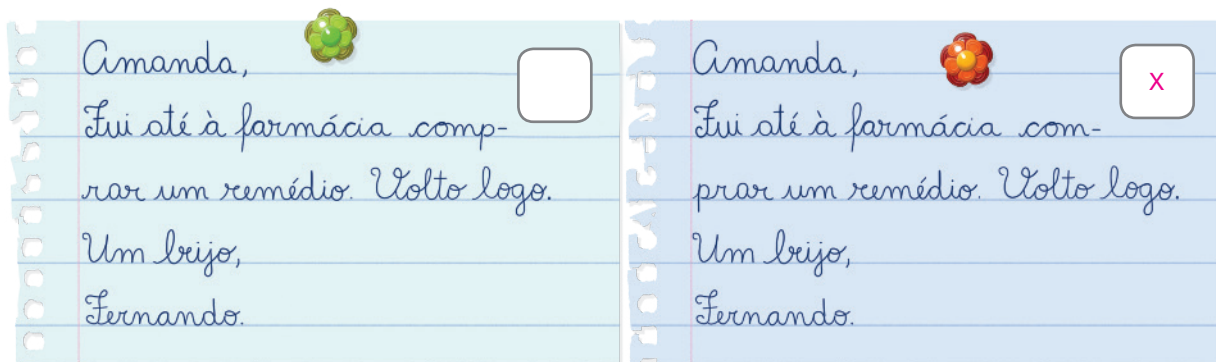 Amanda,
Fui até à farmácia comp-
rar um remédio. Volto logo.
Um beijo,
Fernando.
Amanda,
X
Fui até à farmácia com-
prar um remédio. Volto logo.
Um beijo,
Fernando.